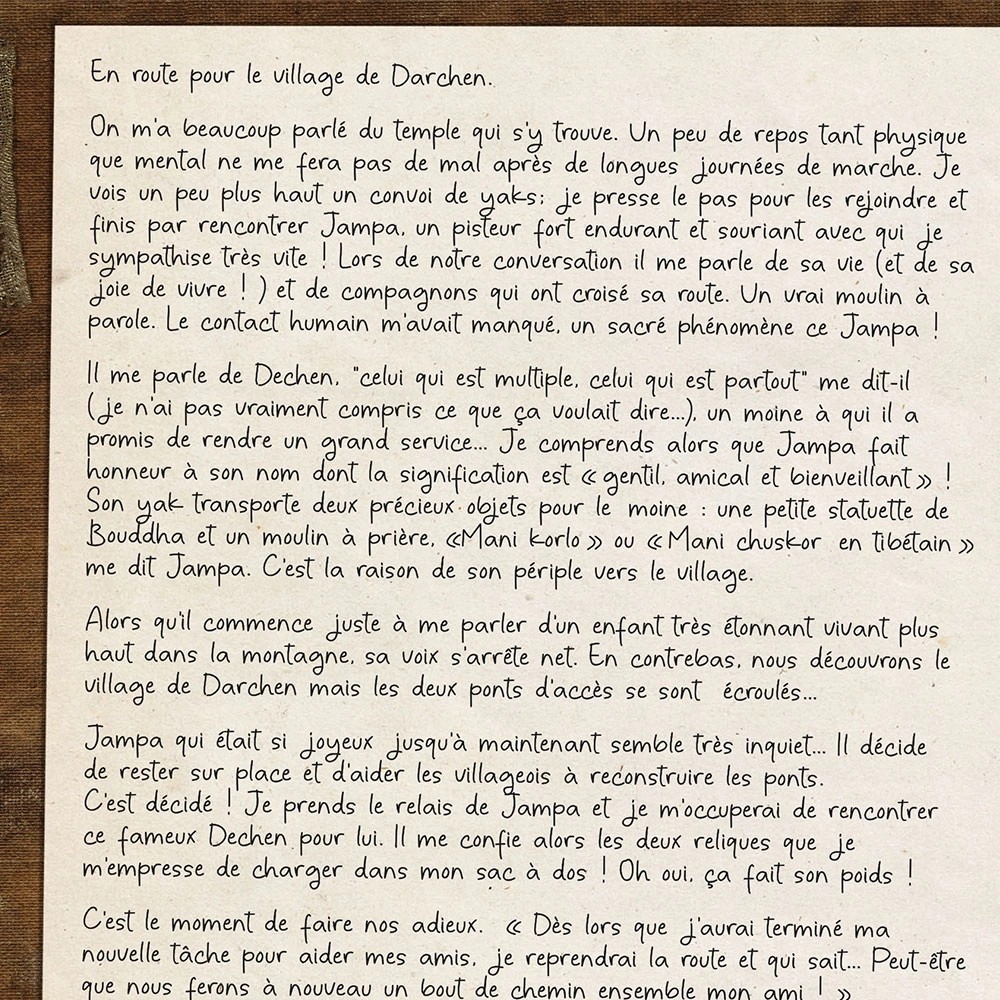 En route pour le village de Darchen.
On m'a beaucoup parlé du temple qui s'y trouve. Un peu de repos tant physique
que mental ne me fera pas de mal après de longues journées de marche. Je
vois un peu plus haut un convoi de yaks; je presse le pas pour les rejoindre et
finis par rencontrer Jampa, un pisteur fort endurant et souriant avec qui je
sympathise très vite ! Lors de notre conversation il me parle de sa vie (et de sa
joie de vivre ! ) et de compagnons qui ont croisé sa route. Un vrai moulin à
parole. Le contact humain m'avait manqué, un sacré phénomène ce Jampa !
Il me parle de Dechen, "celui qui est multiple, celui qui est partout" me dit-il
(je n'ai pas vraiment compris ce que ça voulait dire...), un moine à qui il a
promis de rendre un grand service... Je comprends alors que Jampa fait
honneur à son nom dont la signification est « gentil, amical et bienveillant » !
Son yak transporte deux précieux objets pour le moine : une petite statuette de
Bouddha et un moulin à prière, «Mani korlo » ou « Mani chuskor en tibétain »
me dit Jampa. C'est la raison de son périple vers le village.
Alors qu'il commence juste à me parler d'un enfant très étonnant vivant plus
haut dans la montagne, sa voix s'arrête net. En contrebas, nous découvrons le
village de Darchen mais les deux ponts d'accès se sont écroulés...
Jampa qui était si joyeux jusqu'à maintenant semble très inquiet... Il décide
de rester sur place et d'aider les villageois à reconstruire les ponts.
C'est décidé ! Je prends le relais de Jampa et je m'occuperai de rencontrer
ce fameux Dechen pour lui. Il me confie alors les deux reliques que je
m'empresse de charger dans mon sac à dos ! Oh oui, ça fait son poids !
C'est le moment de faire nos adieux. « Dès lors que j'aurai terminé ma
nouvelle tâche pour aider mes amis, je reprendrai la route et qui sait... Peut-être
que nous ferons à nouveau un bout de chemin ensemble mon ami ! »